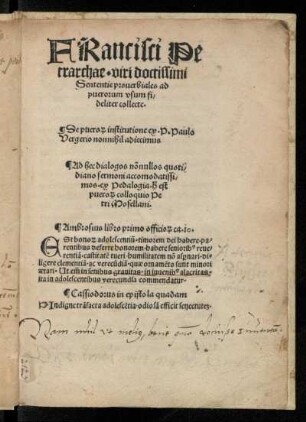 FRancisci Pe
trarchae viri doctissimi
Sententie prouerbiales ad
puerorum vsum fi-
deliter collecte.
¶ De pueroꝝ institutione ex P. Paulo
Vergerio nonnihil adiecimus
¶ Ad hec dialogos nōnullos quoti
diano sermoni accomodatissi
mos ex Pedalogia hoc est
pueroꝝ colloquio Pe
tri Mosellani.
¶ Ambrosius libro primo officioꝝ ca.
ESt bonoꝝ adolescentiū timorem dei habere pa
rentibus deferre honorem habere senioribꝰ reue
rentiā castitatē tueri humilitatem nō aspernari di
ligere clementiā ac verecūdiā que ornamēto sunt minori
etati. Ut est in senibus grauitas in iuuenibꝰ alacritas
ita in adolescentibus verecundia commendatur.
¶ Cassiodorus in epistola quadam